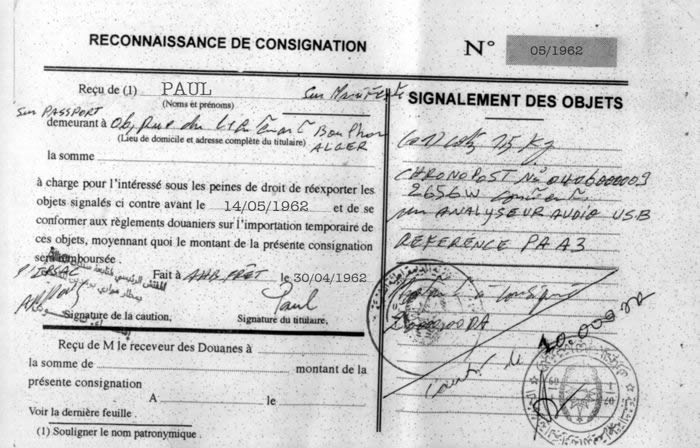 RECONNAISSANCE DE CONSIGNATION
N° 05/1962
Reçu de (1) PAUL
(Noms et prénoms)
Sur PASSPORT
demeurant à 06, Rue du
ALGER
(Lieu de domicile et adresse complète du titulaire)
la somme
à charge pour l'intéressé sous les peines de droit de réexporter les
objets signalés ci contre avant le 14/05/1962 et de se
conformer aux règlements douaniers sur l'importation temporaire de
ces objets, moyennant quoi le montant de la présente consignation
sera remboursée.
Fait à AHB FRET le 30/04/1962
Paul
Signature de la caution, Signature du titulaire,
Reçu de M le receveur des Douanes à
la somme de montant de la
présente consignation
A le
Voir la dernière feuille .
(1) Souligner le nom patronymique .
SIGNALEMENT DES OBJETS
25 Kg
CHRONOPOST N° 0406000009
2656W
un ANALYSEUR AUDIO USB
REFERENCE PAA3
DA
10.000,00